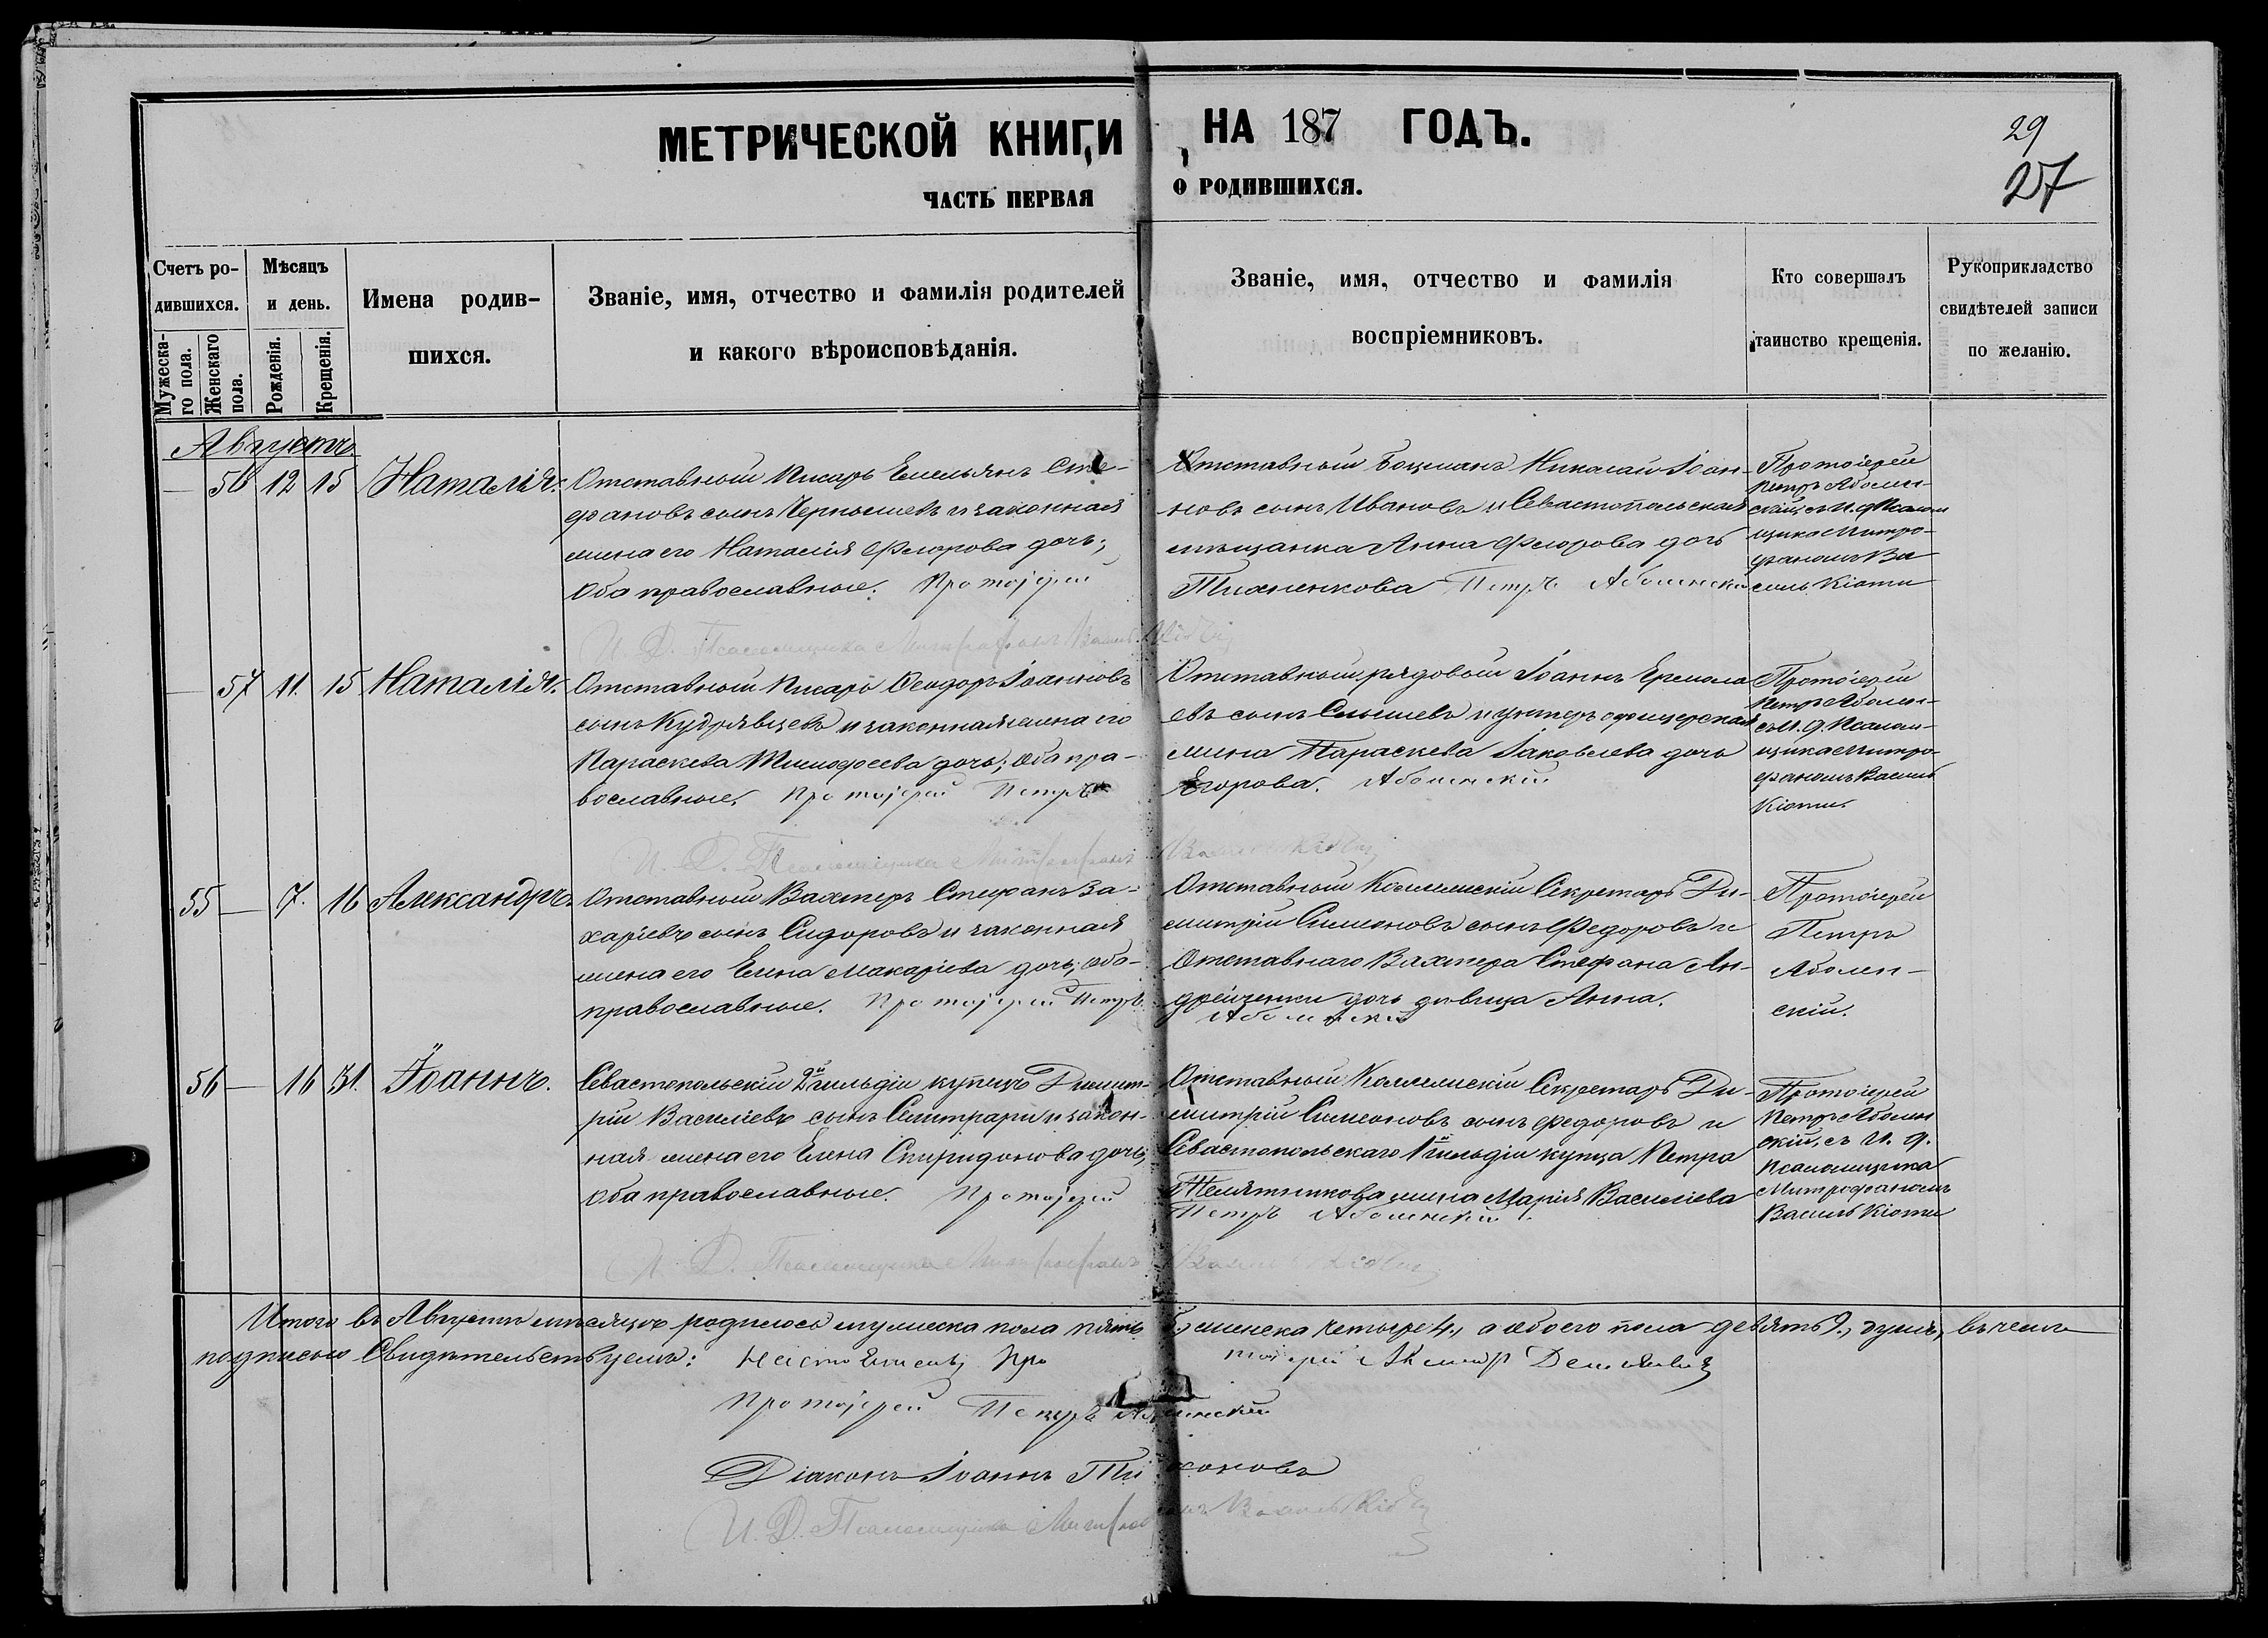 МЕТРИЧЕСКОЙ КНИГИ НА 187 ГОДЪ.
29
27
ЧАСТЬ ПЕРВАЯ О РОДИВШИХСЯ.
Счетъ родившихся.
Мужескаго пола.
Женскаго пола.
Мѣсяцъ и день.
Рожденія.
Крещенія.
Имена родившихся.
Званіе, имя, отчество и фамилія родителей
и какого вѣроисповѣданія.
Званіе, имя, отчество и фамилія
воспріемниковъ.
Кто совершалъ
таинство крещенія.
Рукоприкладство
свидѣтелей записи
по желанію.
Августъ
— 56 12 15 Наталія.
Отставный Писарь Емельянъ Сте-
фановъ сынъ Чернышевъ и законная
жена его Наталія Феодорова дочь;
оба православные. Протоіерей
Отставный Боцманъ Николай Іоан-
новъ сынъ Ивановъ и Севастопольская
мѣщанка Анна Феодорова дочь
Тихоненкова Петръ Аболенскій
Протоіерей
Петръ Аболен-
скій съ И. д. Псалом-
щика Митро-
фаномъ Ва
силь Кіоти
И. Д. Псаломщика Митрофанъ Василь Кіоти
— 57 11. 15 Наталія.
Отставный Писарь Ѳеодоръ Іоанновъ
сынъ Кудрявцевъ и законная жена его
Параскева Тимофеева дочь; оба пра-
вославные. Протоіерей Петръ
Отставный рядовый Іоаннъ Ермола
евъ сынъ Слышевъ и унтеръ офицерская
жена Параскева Іаковлева дочь
Егорова. Аболенскій
Протоіерей
Петръ Аболен-
съ И. д. Псалом-
щика Митро-
фаномъ Василь
Кіоти.
И. Д. Псаломщика Митрофанъ Василь Кіоти
55 — 7. 16 Александръ.
Отставный Вахтеръ Стефанъ За-
харіевъ сынъ Сидоровъ и законная
жена его Елена Макаріева дочь; оба
православные. Протоіерей Петръ
Отставный Коллежскій Секретарь Ди-
митрій Симеоновъ сынъ Федоровъ и
Отставнаго Вахтера Стефана Ан-
дрейченки дочь дѣвица Анна.
Аболенскій
Протоіерей
Петръ
Аболен-
скій.
56 — 16 31. Іоаннъ.
Севастопольскій 2й гильдіи купецъ Димит-
рій Василіевъ сынъ и закон-
ная жена его Елена Спиридонова дочь;
оба православные. Протоіерей
Отставный Коллежскій Секретарь Ди-
митрій Симеоновъ сынъ Федоровъ и
Севастопольскаго 1й гильдіи купца Петра
Телятникова жена Марія Василіева
Петръ Аболенскій
Протоіерей
Петръ Аболен
скій, съ И. д.
Псаломщика
Митрофаномъ
Василь Кіоти
И. Д. Псаломщика Митрофанъ Василь Кіоти
Итого въ Августѣ мѣсяцѣ родилось мужеска пола пять 5, женска четыре 4, а обоего пола девять 9, душъ, въ чемъ
подписью Свидѣтельствуемъ: Настоятель Протоіерей
Протоіерей Петръ Аболенскій
Діаконъ Іоаннъ Тихоновъ
И. Д. Псаломщика Митрофанъ Василь Кіоти